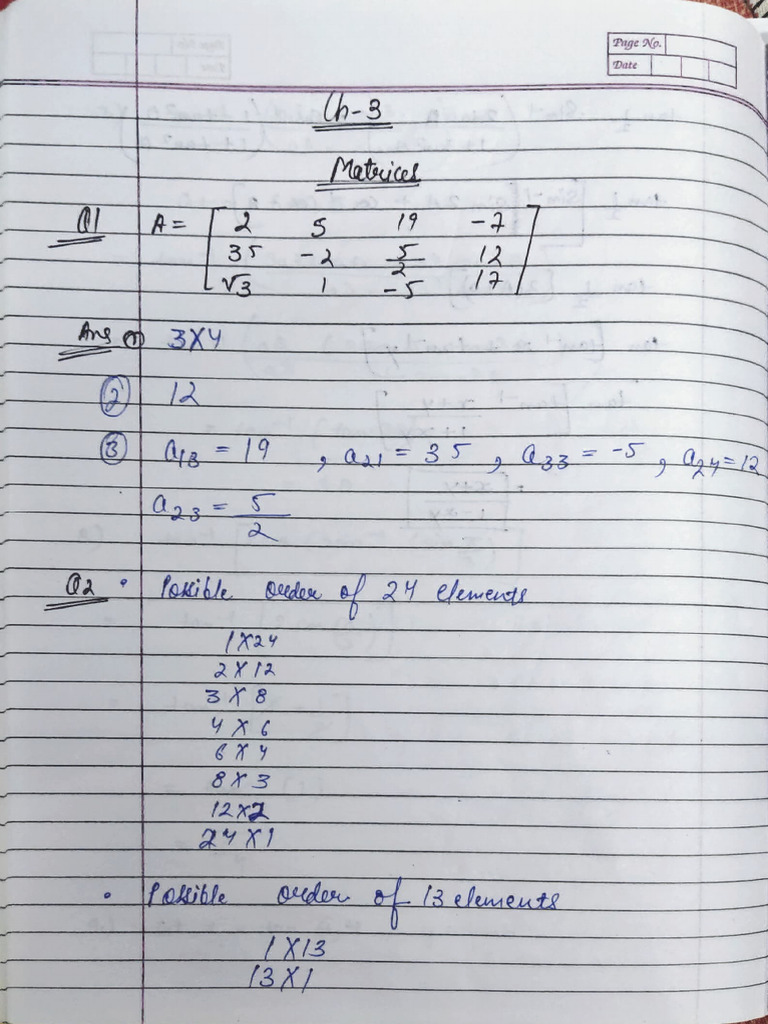 Page No.
Date
Ch-3
Matrices
Q1 A = [ 2 5 19 -7
35 -2 5/2 12
√3 1 -5 17 ]
Ans ① 3X4
② 12
③ a13 = 19 , a21 = 35 , a33 = -5 , a24 = 12
a23 = 5/2
Q2 • Possible order of 24 elements
1X24
2X12
3X8
4X6
6X4
8X3
12X2
24X1
• Possible order of 13 elements
1X13
13X1